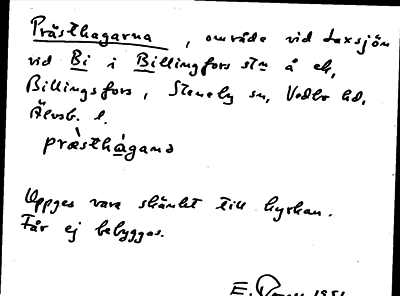 Prästhagarna, område vid Laxsjön
vid Bi i Billingsfors stn å ek,
Billingsfors, Steneby sn, Vedbo hd,
Älvsb. l.
præsthàgana
Uppges vara skänkt till kyrkan.
Får ej bebyggas.
E. 1951